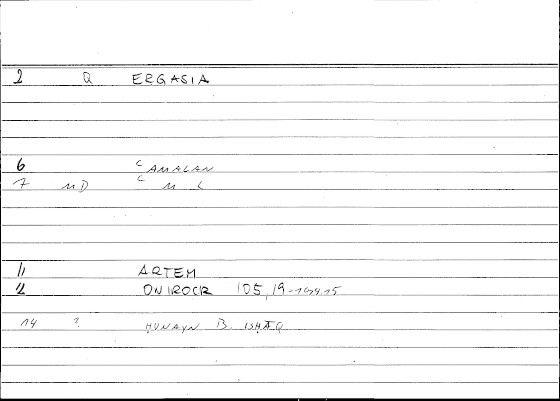 2 Q ERGASIA
6 CAMALAN
7 MD C M C
11 ARTEM
12 ONIROCR 105,19-
14 ? HUNAYN B. ISHAQ